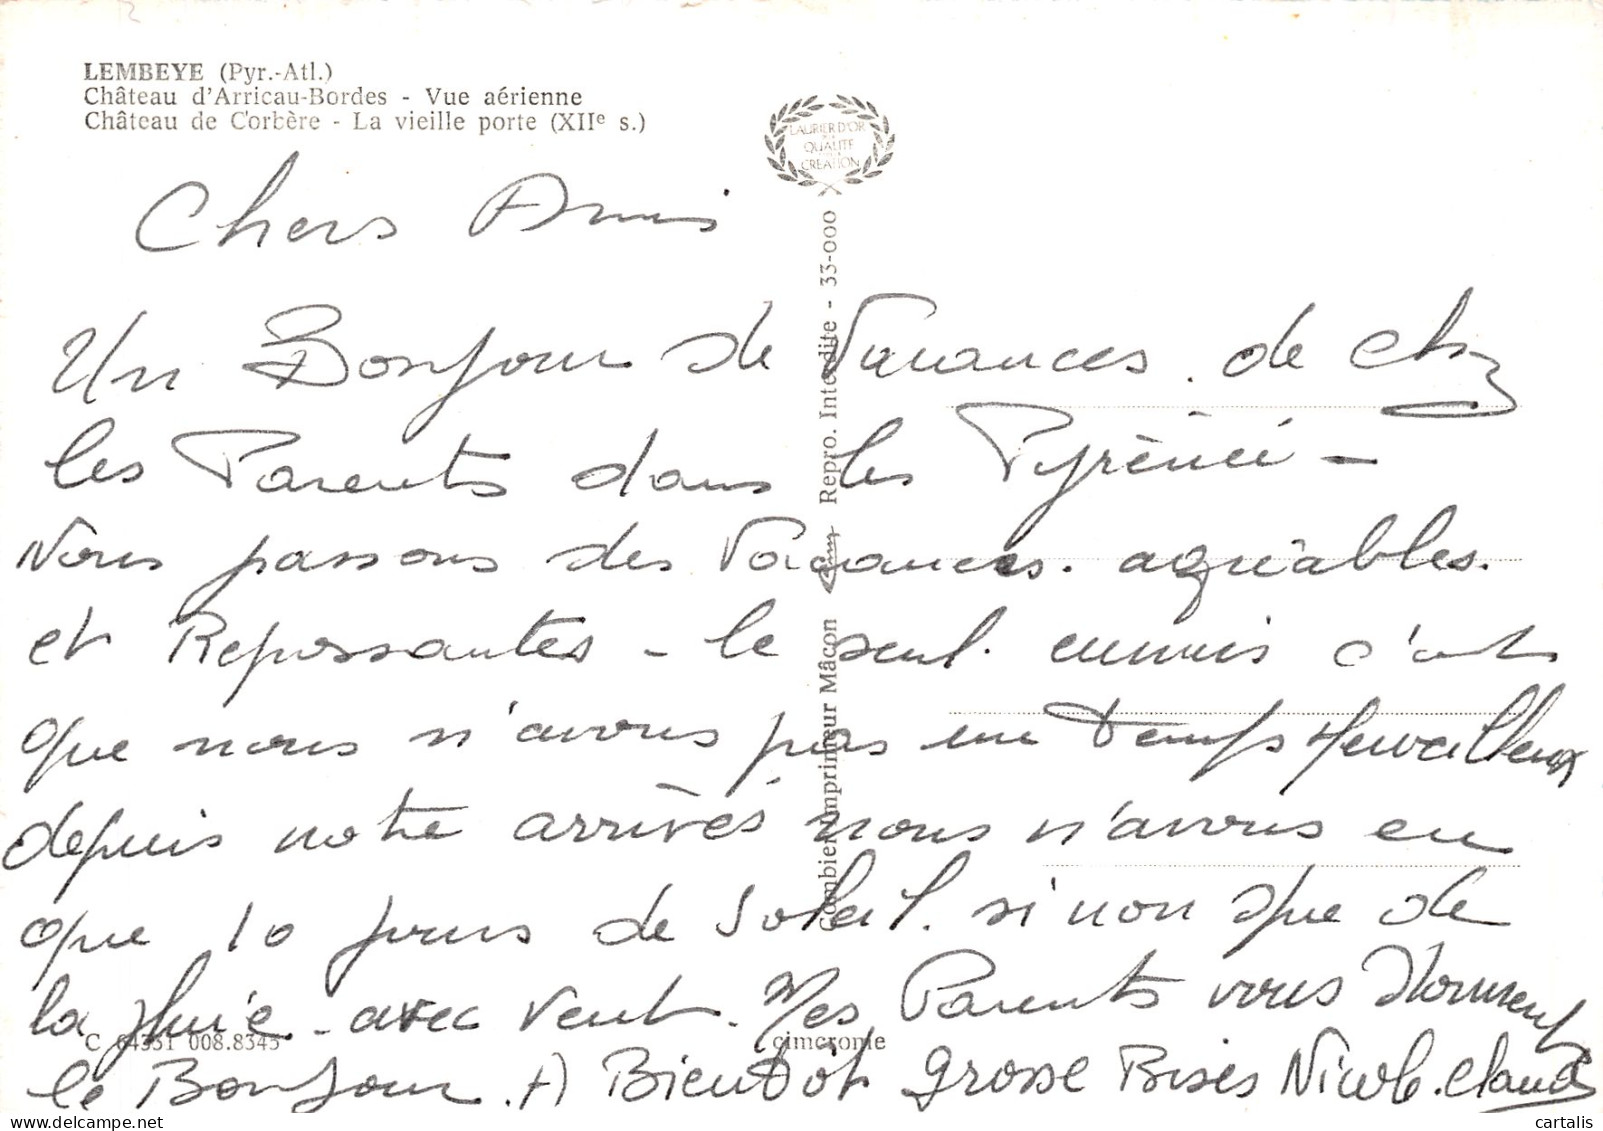 LEMBEYE (Pyr.-Atl.)
Château d'Arricau-Bordes - Vue aérienne
Château de Corbère - La vieille porte (XIIe s.)
LAURIER D'OR
QUALITÉ
CRÉATION
Chers Amis
Un Bonjour de Vacances. de chez
les Parents dans les Pyrénéé -
Nous passons des Vacances. agréables.
et Repossantes - le seul. ennuis c'est
que nous n'avons pas un temps Merveilleux
depuis notre arrivés nous n'avons eu
que 10 jours de Soleil. si non que de
la pluie - avec vent. Mes Parents vous Donnent
le Bonjour. A Bientôt grosse Bises Nicole. Claude
Combier imprimeur Mâcon Repro. Interdite - 33-000
C 64331 008.8343
cimcrome
www.delcampe.net
cartalis